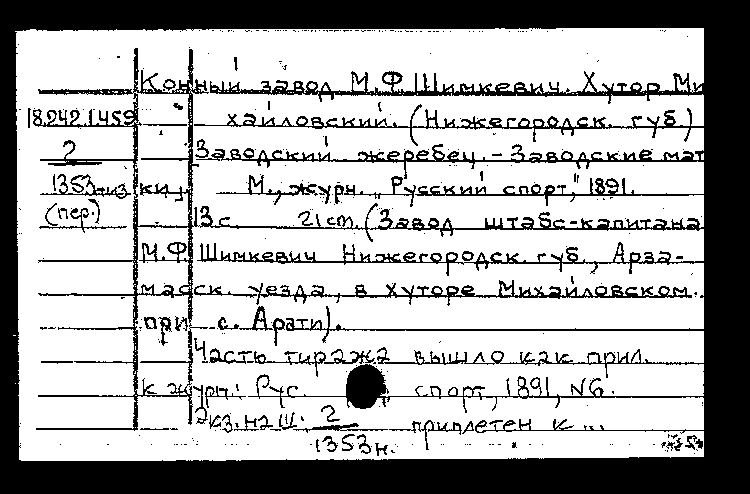 Конный завод М.Ф.Шимкевич. Хутор Ми
18.242.1.459 хайловский. (Нижегородск. губ.)
2 Заводский жеребец. - Заводские мат
1353 ки]. М., журн. „Русский спорт," 1891.
(пер.) 13 с. 21 cm. (Завод штабс-капитана
М.Ф. Шимкевич Нижегородск. губ., Арза-
масск. уезда, в Хуторе Михайловском.
при с. Арати).
Часть тиража вышло как прил.
к журн.: Рус. спорт, 1891, N6.
Экз. на Ш. 2 приплетен к ...
1353н.